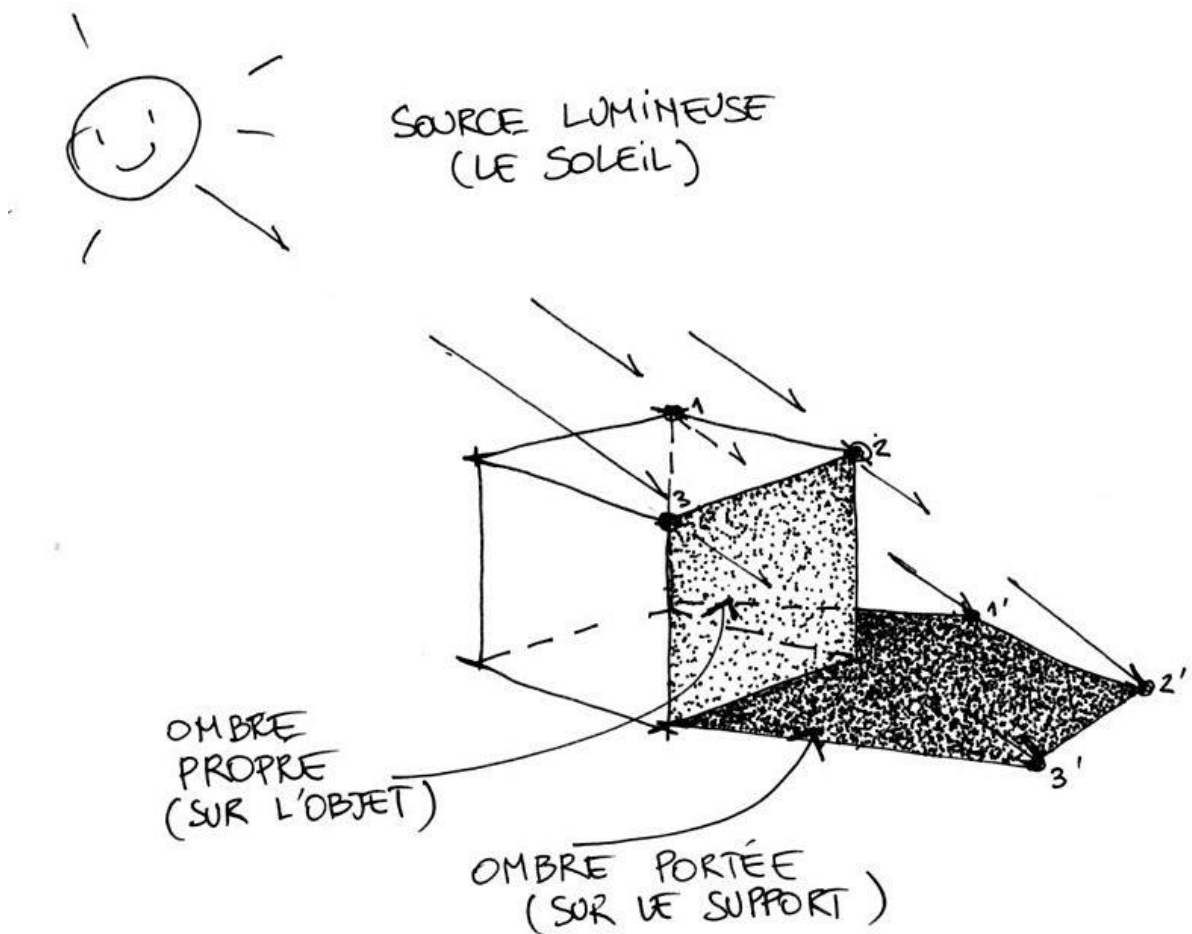 SOURCE LUMINEUSE
(LE SOLEIL)
1
2
3
1'
2'
3'
OMBRE
PROPRE
(SUR L'OBJET)
OMBRE PORTÉE
(SUR LE SUPPORT)